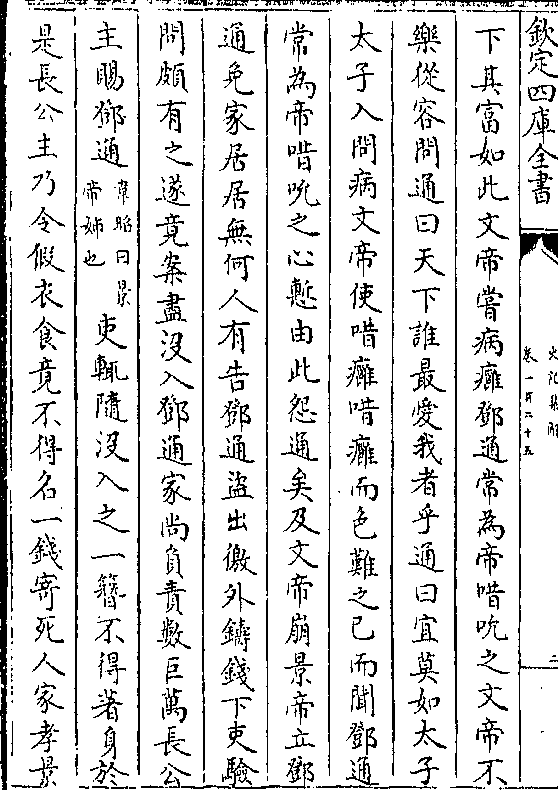 欽定四庫全書
史記集解
卷一百二十五
二
下其富如此文帝嘗病癰鄧通常為帝唶吮之文帝不
樂從容問通曰天下誰最愛我者乎通曰宜莫如太子
太子入問病文帝使唶癰唶癰而色難之已而聞鄧通
常為帝唶吮之心慙由此怨通矣及文帝崩景帝立鄧
通免家居居無何人有告鄧通盜出徼外鑄錢下吏驗
問頗有之遂竟案盡沒入鄧通家尚負責數巨萬長公
主賜鄧通韋昭曰景帝姊也吏輒隨沒入之一簪不得著身於
是長公主乃令假衣食竟不得名一錢寄死人家孝景